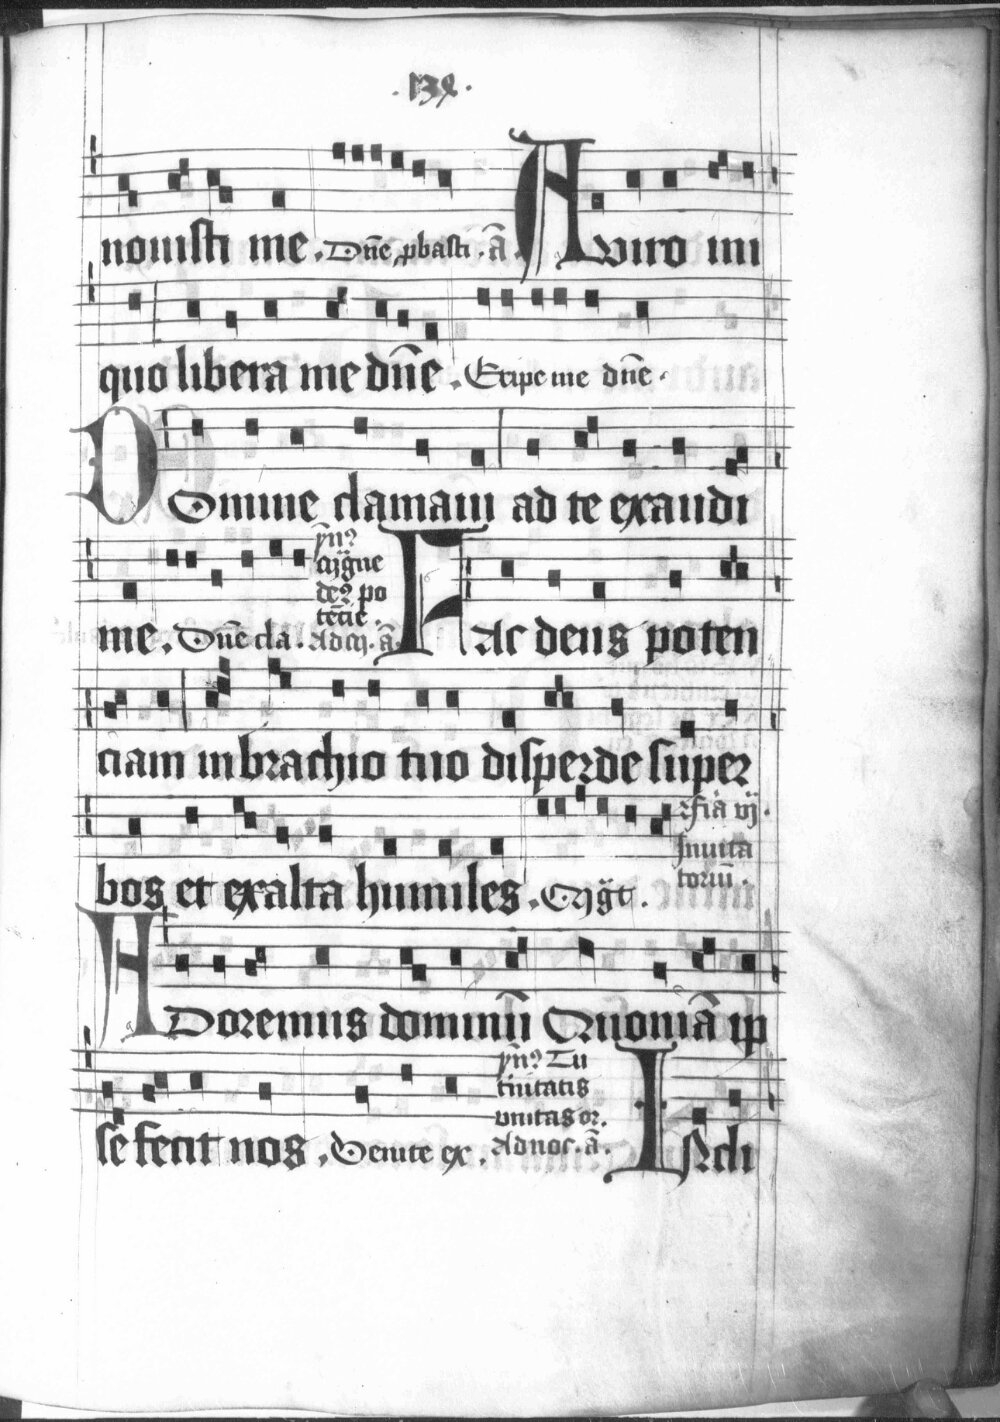 ·139·
nouisti me . Dn̄e ꝓbasti . ā . A viro ini
quo libera me dn̄e . Eripe me dn̄e .
Domine clamaui ad te exaudi
me . Dn̄e cla .
 Magne
de⁹ po
tēcie .
Ad ā . Fac deus poten
ciam in brachio tuo disperde super
bos et exalta humiles .
Fīa vj .
Inuita
toriū .
Adoremus dominū Quoniā ip
se fecit nos . Venite ex .
yn⁹ Tu
tinitatis
vnitas or .
Ad noc . ā . In seli